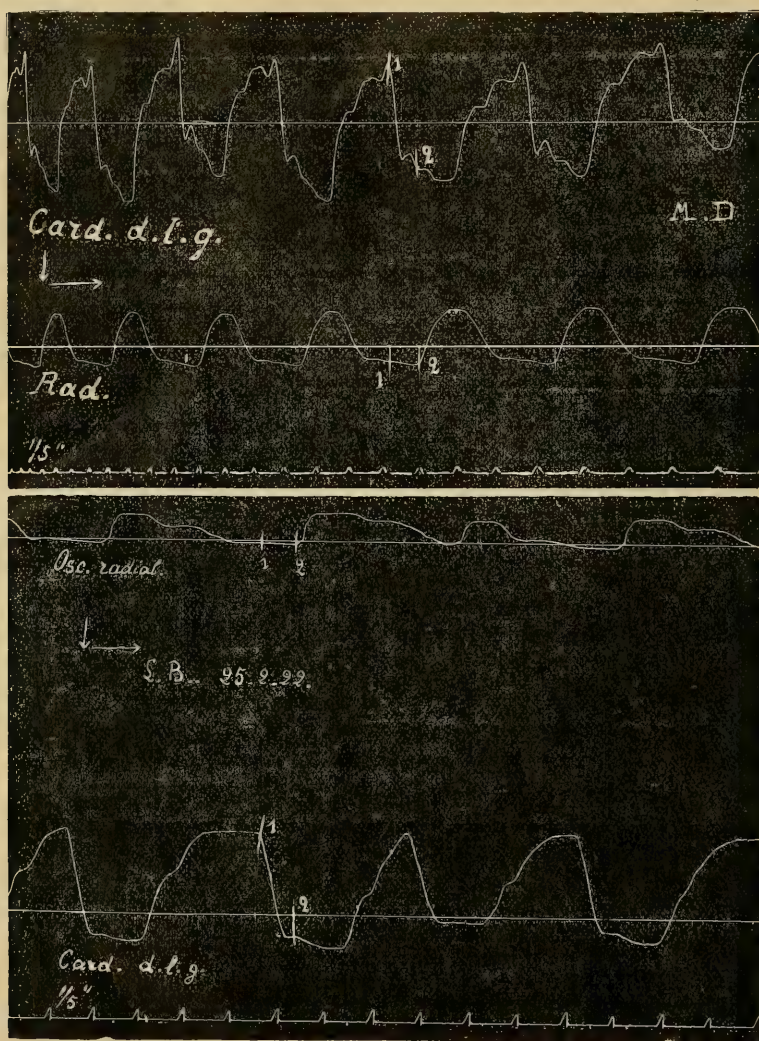 1
2
M.D
Card. d.l.g.
1 2
Rad.
1/5"
Osc. radial.
1 2
L.B. 25-2-22.
1
2
Card. d.l.g.
1/5"